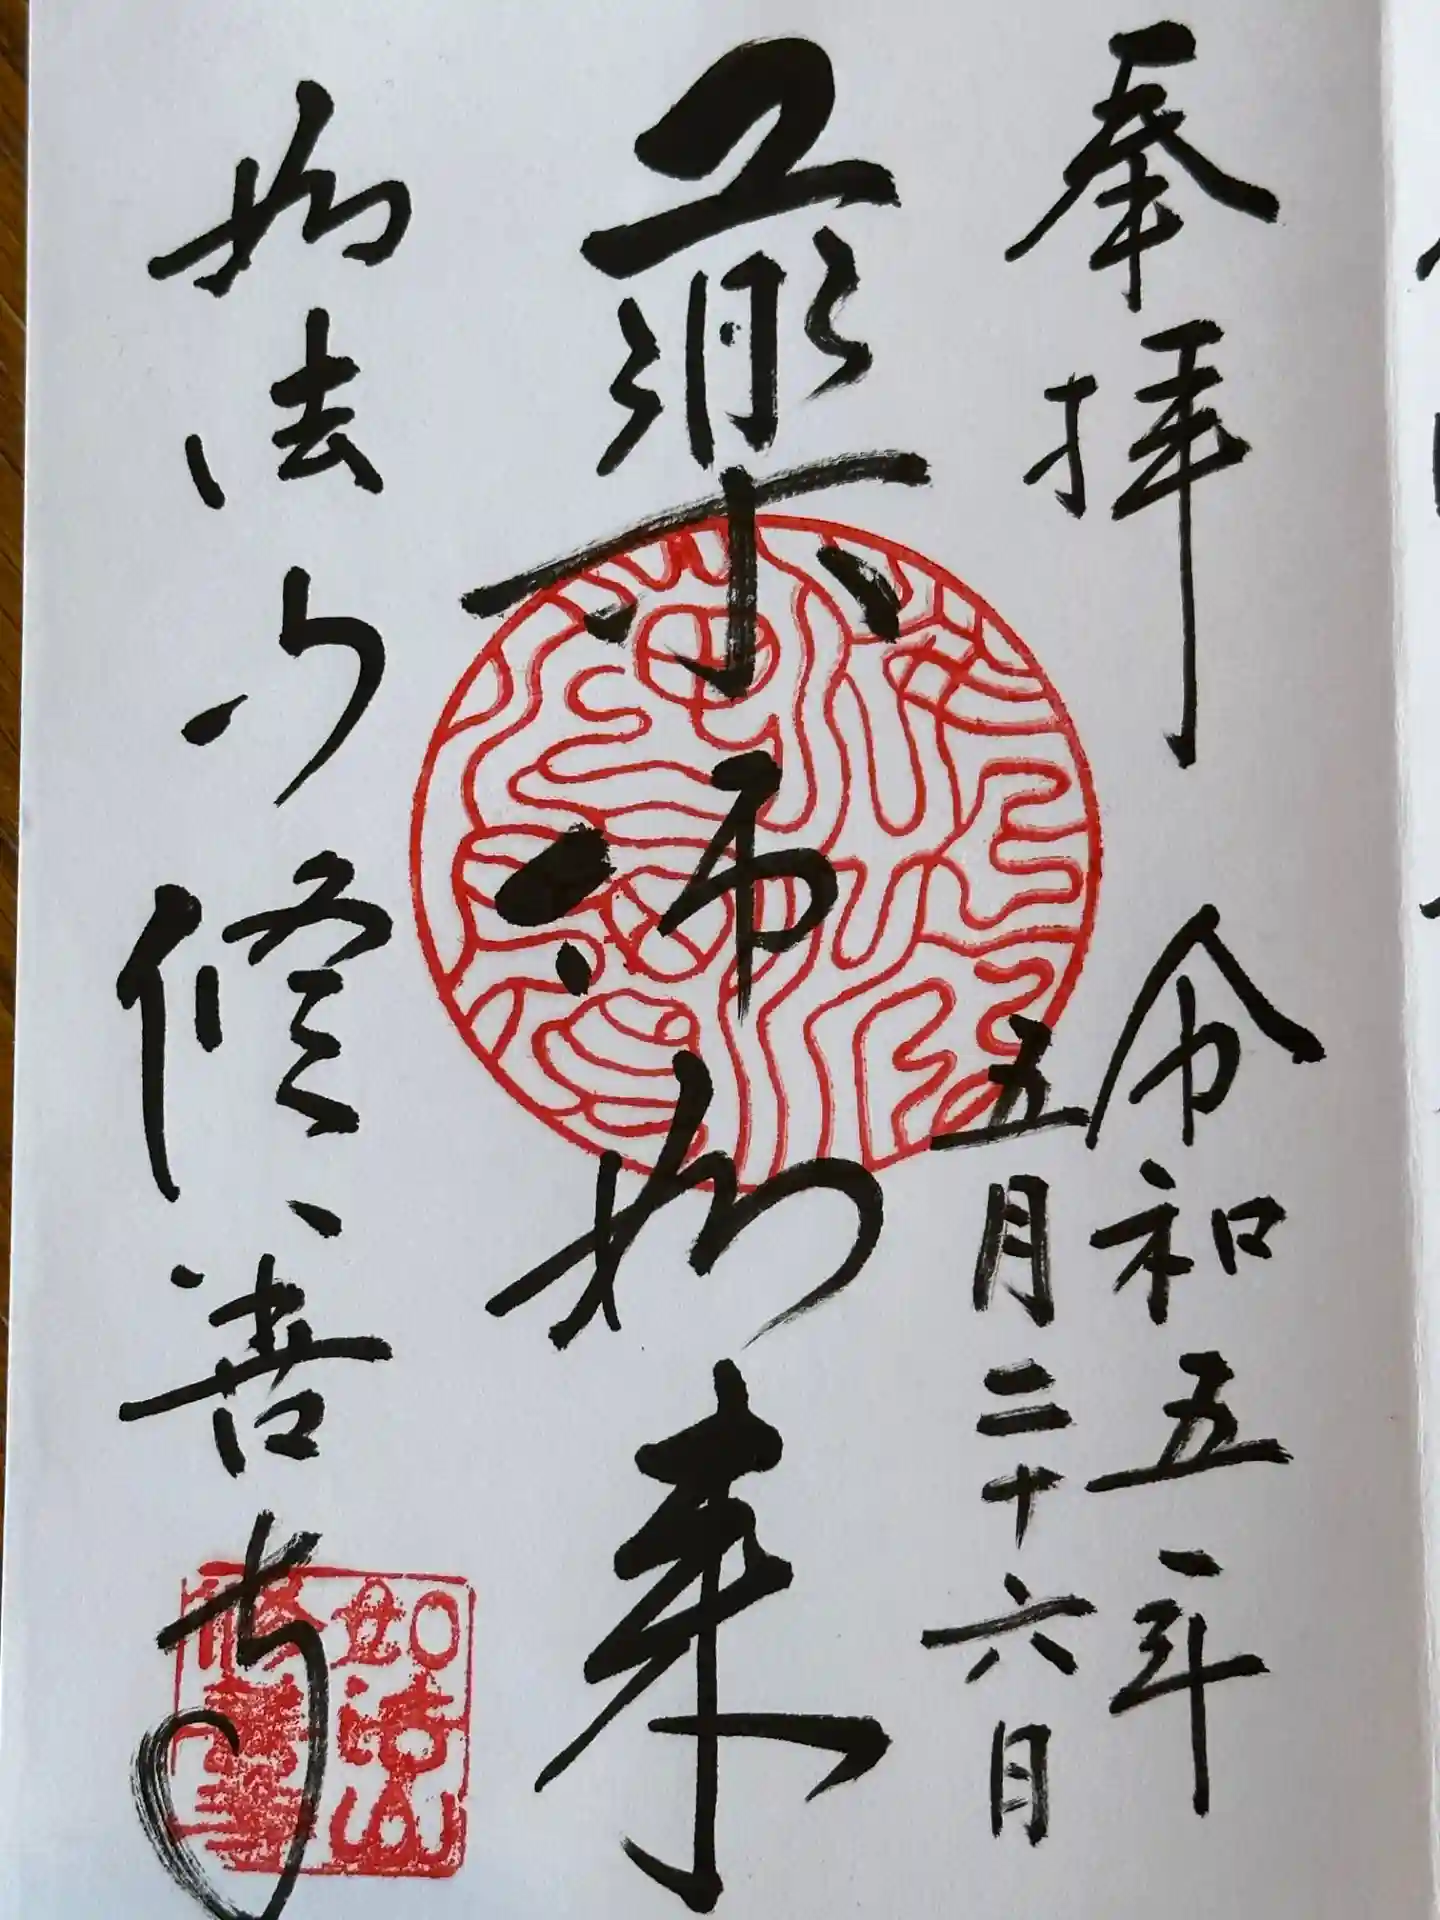 奉拝
令和五年
五月二十六日
薬師如来
如法山
修善寺
如法山
修善寺